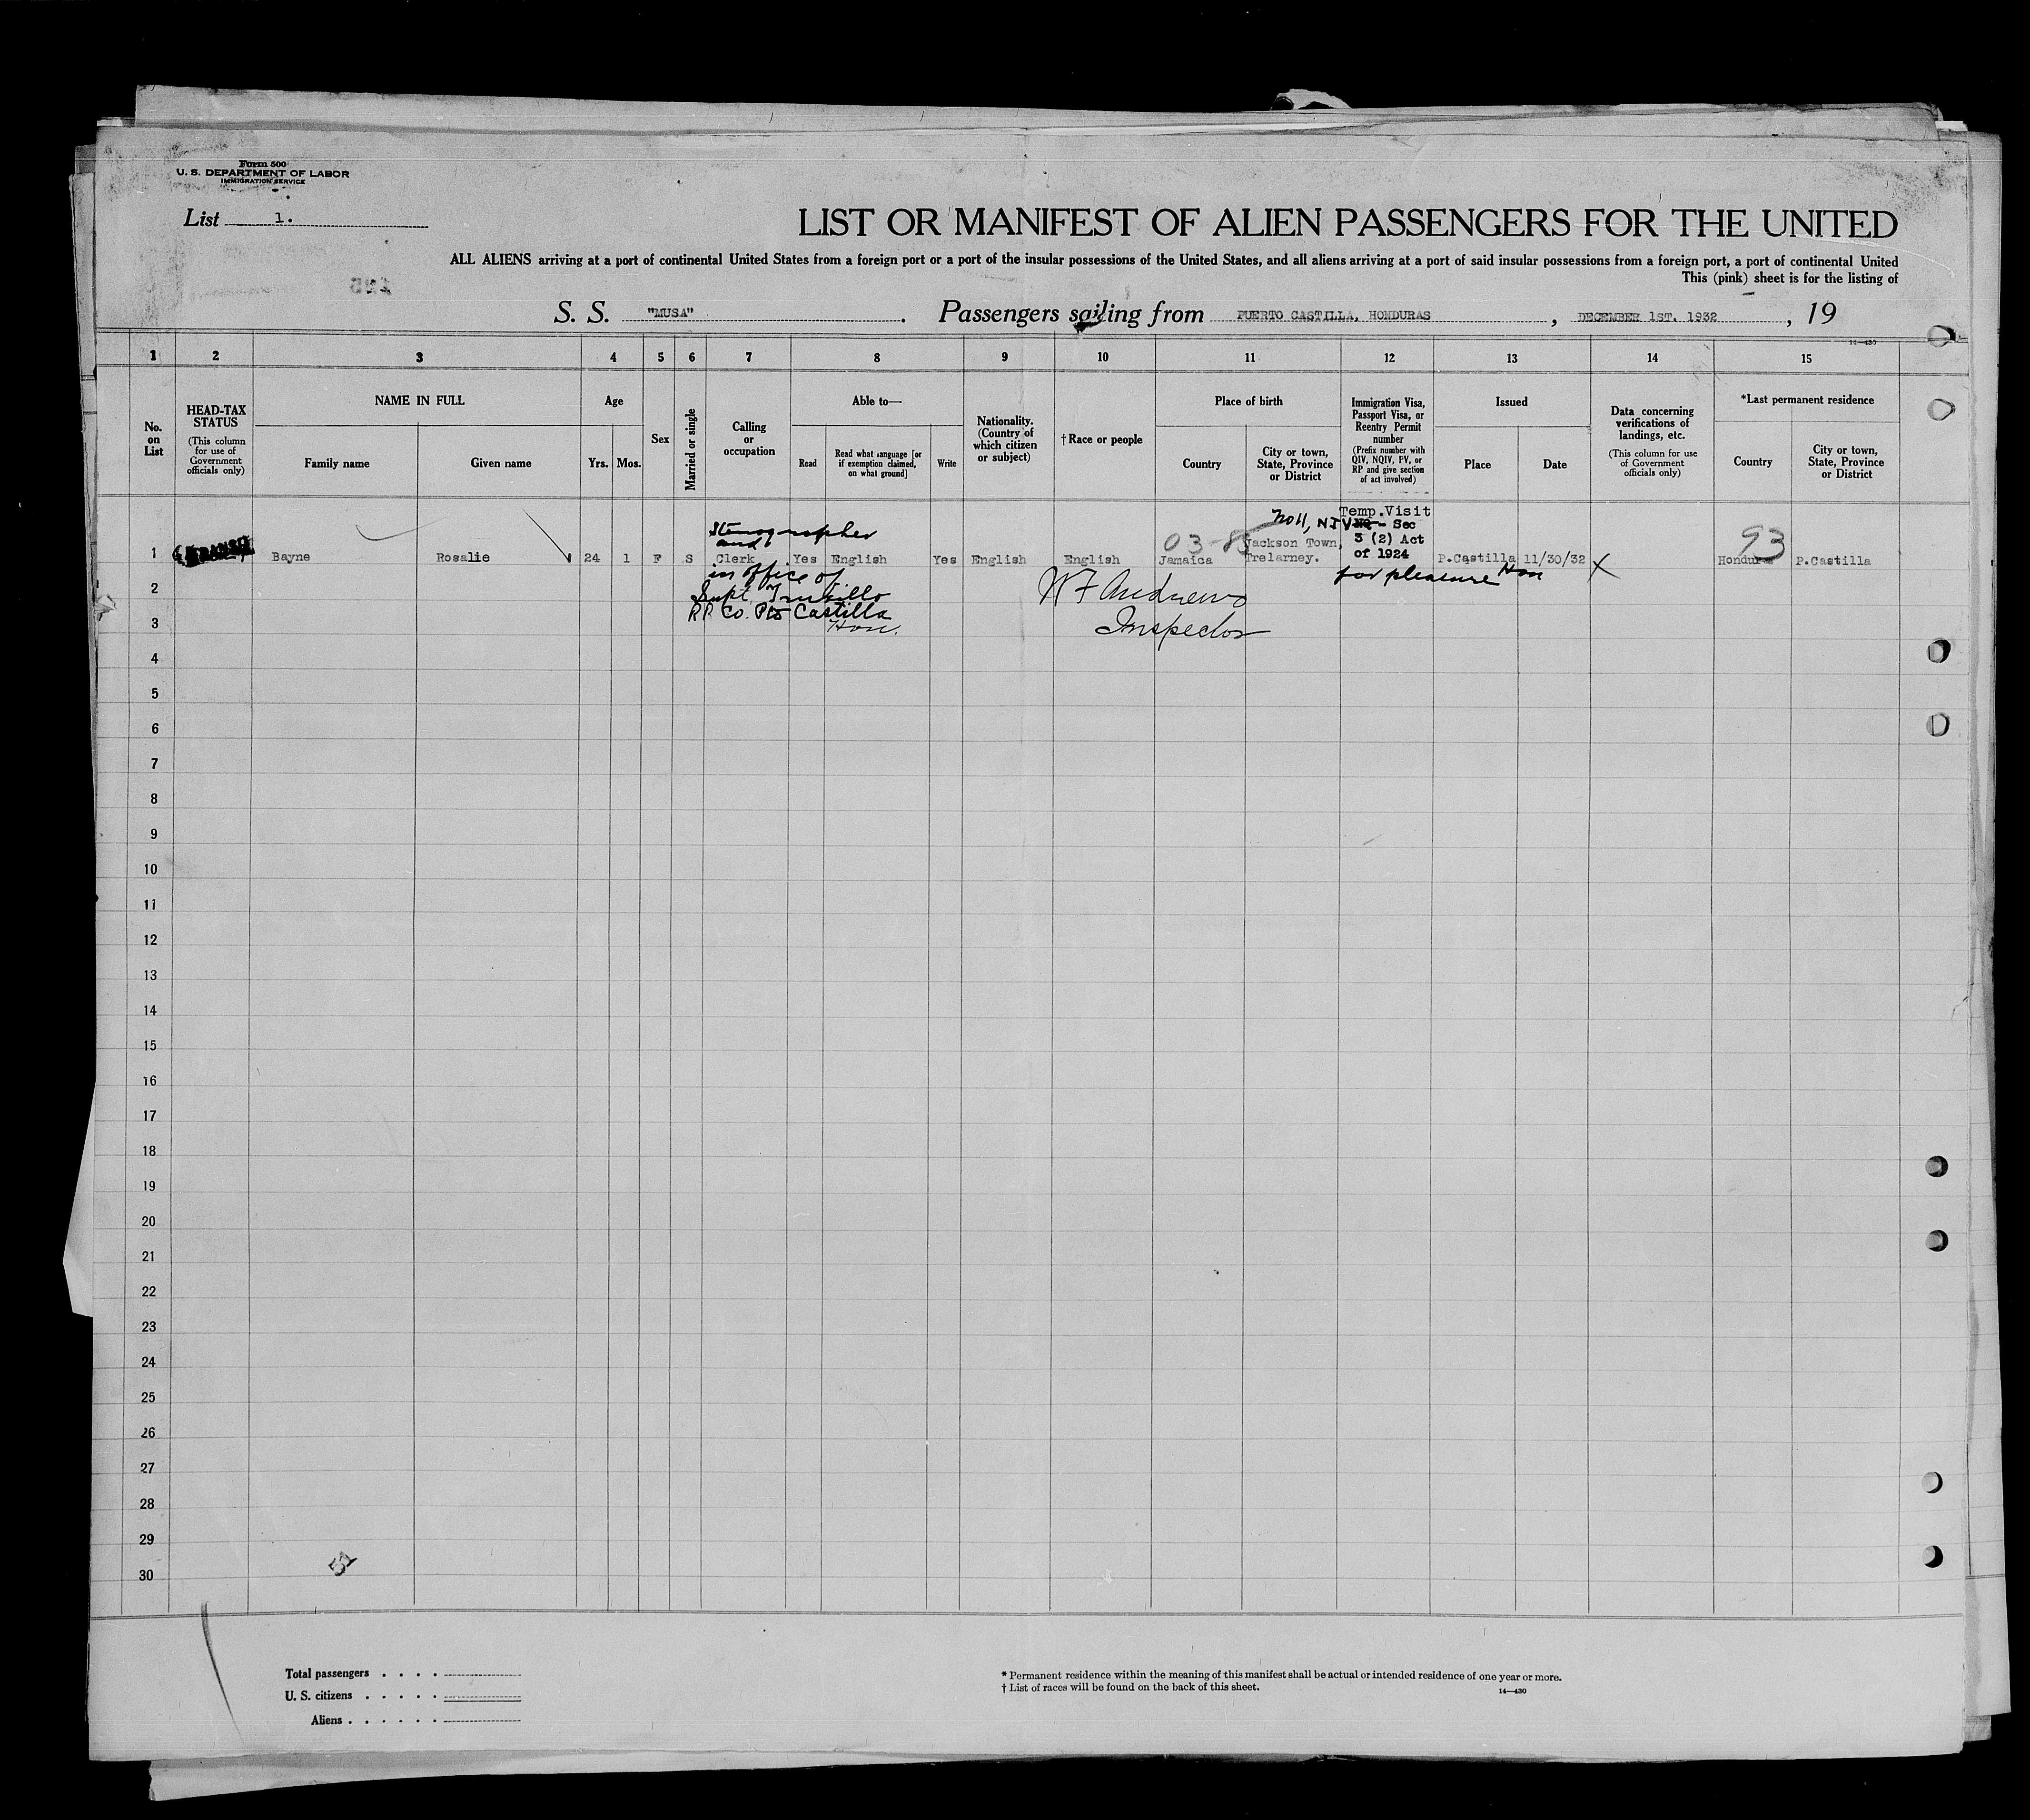 Form 500
U. S. DEPARTMENT OF LABOR
IMMIGRATION SERVICE
List 1.
LIST OR MANIFEST OF ALIEN PASSENGERS FOR THE UNITED
ALL ALIENS arriving at a port of continental United States from a foreign port or a port of the insular possessions of the United States, and all aliens arriving at a port of said insular possessions from a foreign port, a port of continental United
This (pink) sheet is for the listing of
S. S. "MUSA". Passengers sailing from PUERTO CASTILLA, HONDURAS, DECEMBER 1ST. 1932, 19
14—430
1 2 3 4 5 6 7 8 9 10 11 12 13 14 15
No. on List
HEAD-TAX STATUS
(This column for use of Government officials only)
NAME IN FULL
Family name
Given name
Age
Yrs.
Mos.
Sex
Married or single
Calling or occupation
Able to—
Read
Read what language [or if exemption claimed, on what ground]
Write
Nationality. (Country of which citizen or subject)
†Race or people
Place of birth
Country
City or town, State, Province or District
Immigration Visa, Passport Visa, or Reentry Permit number
(Prefix number with QIV, NQIV, PV, or RP and give section of act involved)
Issued
Place
Date
Data concerning verifications of landings, etc.
(This column for use of Government officials only)
*Last permanent residence
Country
City or town, State, Province or District
1 TRANSIT Bayne Rosalie 24 1 F S Stenographer and Clerk Yes English Yes English English Jamaica Jackson Town, Trelarney. P.Castilla 11/30/32 X Honduras P.Castilla
in office of
Supt Truxillo
RR Co. Pto Castilla
Hon.
03-85
No 11, NIV
Temp.Visit
- Sec
3 (2) Act
of 1924
for pleasure
Hon
93
W F Andrews
Inspector
2
3
4
5
6
7
8
9
10
11
12
13
14
15
16
17
18
19
20
21
22
23
24
25
26
27
28
29
30
51
Total passengers . . . .
U. S. citizens . . . . .
Aliens . . . . . .
* Permanent residence within the meaning of this manifest shall be actual or intended residence of one year or more.
† List of races will be found on the back of this sheet.
14—430